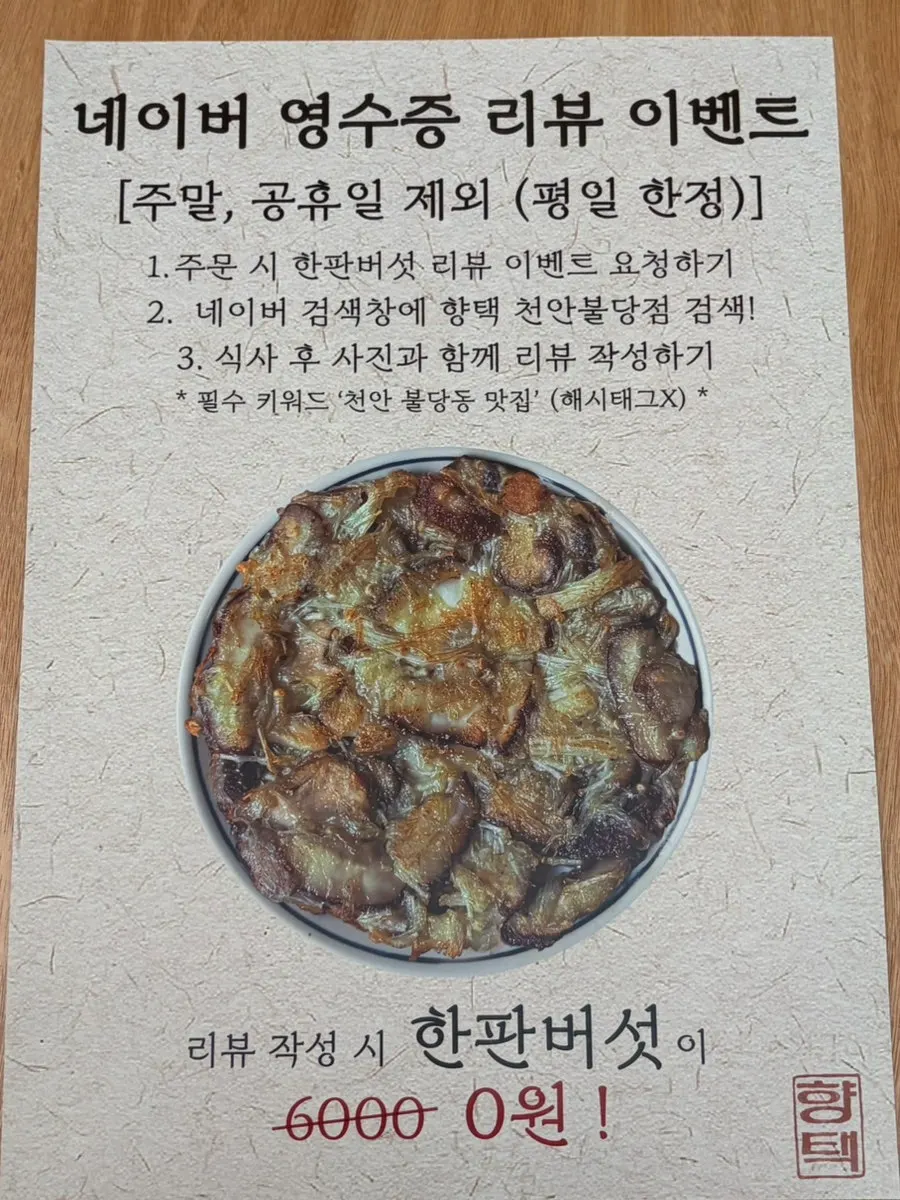 네이버 영수증 리뷰 이벤트
[주말, 공휴일 제외 (평일 한정)]
1.주문 시 한판버섯 리뷰 이벤트 요청하기
2. 네이버 검색창에 향택 천안불당점 검색!
3. 식사 후 사진과 함께 리뷰 작성하기
* 필수 키워드 ‘천안 불당동 맛집’ (해시태그X) *
리뷰 작성 시 한판버섯이
6000 0원!
향택